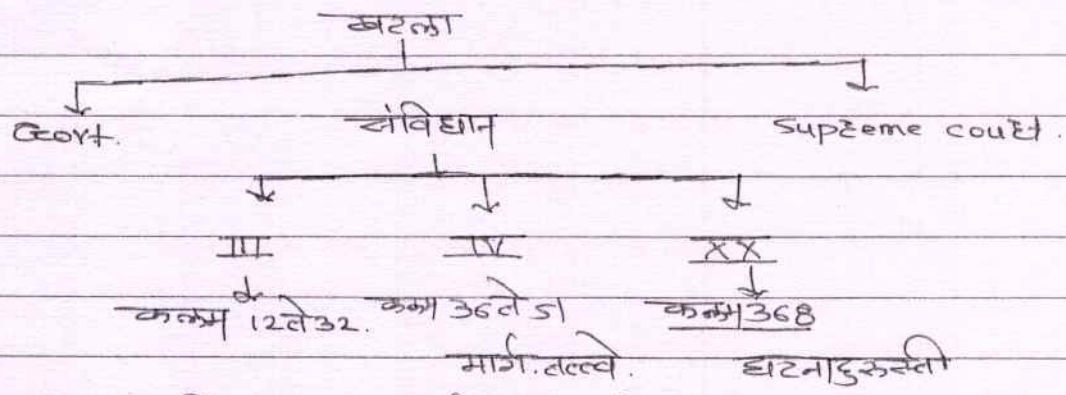 खटला
Govt. संविधान Supreme court.
III IV XX
कलम 12 ते 32. कलम 36 ते 51 कलम 368
मार्ग. तत्त्वे. घटनादुरुस्ती